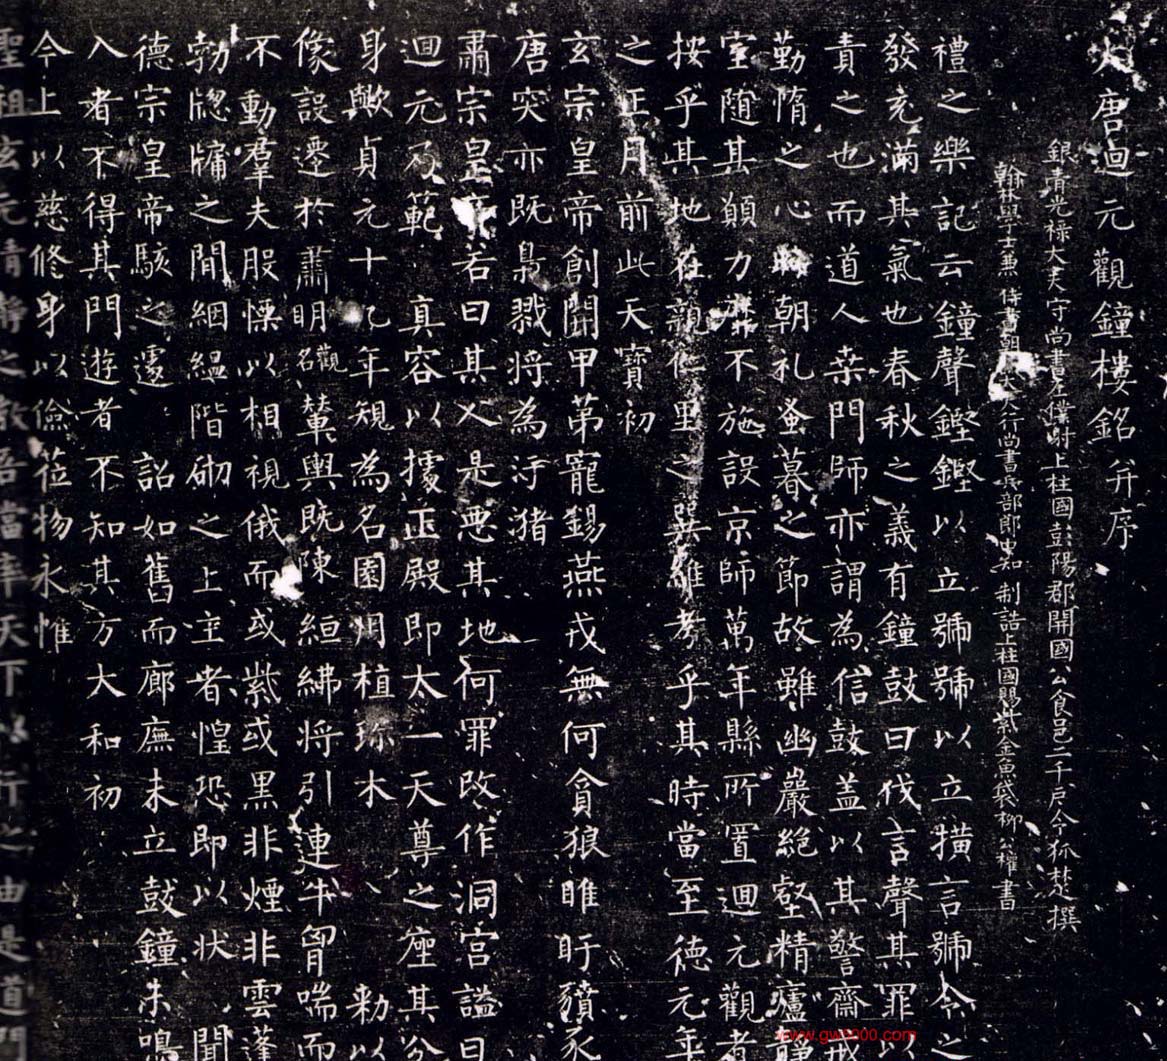 大唐迴元觀鐘樓銘并序
銀青光祿大夫守尚書左僕射上柱國彭陽郡開國公食邑二千戶令狐楚撰
翰林學士兼侍書朝大夫行尚書兵部郎中知制誥上柱國賜紫金魚袋柳公權書
禮之樂記云鐘聲鏗鏗以立號號以立橫言號令之
發充滿其氣也春秋之義有鐘鼓曰伐言聲其罪以
責之也而道人桒門師亦謂為信鼓盖以其警齋戒
勤惰之心時朝礼蚤暮之節故雖幽巖絕壑精廬
室隨其願力靡不施設京師萬年縣所置迴元觀者
按乎其地在親仁里之巽維考乎其時當至德元年
之正月前此天寶初
玄宗皇帝創開甲第寵錫燕戎無何貪狼睢盱豶豕
唐突亦既梟戮將為汙潴
肅宗皇帝若曰其人是惡其地何罪改作洞宮謚曰
迴元乃範真容以據正殿即太一天尊之座其分
身歟貞元十九年規為名園用植珎木敕以
像設遷於肅明觀名輦輿既陳絙紼將引連牛胷喘而
不動羣夫股慄以相視俄而或紫或黑非煙非雲蓬
勃牎牖之間絪縕階砌之上主者惶恐即以狀聞
德宗皇帝駭之遽詔如舊而廊廡未立鼓鐘未鳴
入者不得其門遊者不知其方大和初
今上以慈修身以儉莅物永惟
聖祖玄元清靜之教吾當率天下以行之由是道門
www.gw8000.com